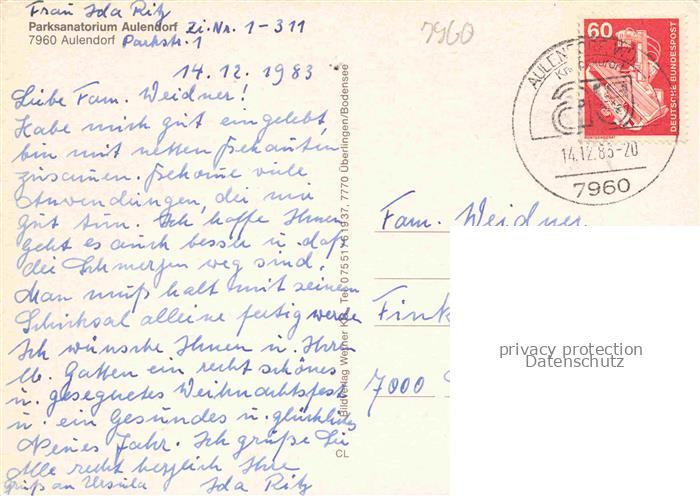 Frau Ida Ritz
Parksanatorium Aulendorf Zi. Nr. 1-311
7960 Aulendorf Parkstr. 1
7960
14.12.1983
Liebe Fam. Weidner!
Habe mich gut eingelebt,
bin mit netten Bekannten
zusamen. Bekome viele
Anwendungen, die mir
gut tun. Ich hoffe Ihnen
geht es auch besser u. daß
die Schmerzen weg sind.
Man muß halt mit seinem
Schicksal alleine fertig werden
Ich wünsche Ihnen u. Ihrem
lb. Gatten ein recht schönes
u. gesegnetes Weihnachtsfest
u. ein Gesundes u. glückliches
Neues Jahr. Ich grüße Sie
Alle recht herzlich Ihre
Gruß an Ursula Ida Ritz
Bildverlag Werner Tel. 07551/61937, 7770 Überlingen/Bodensee
CL
60
DEUTSCHE BUNDESPOST
AULENDORF
14.12.83-20
7960
Fam. Weidner
Fink
7000
privacy protection
Datenschutz